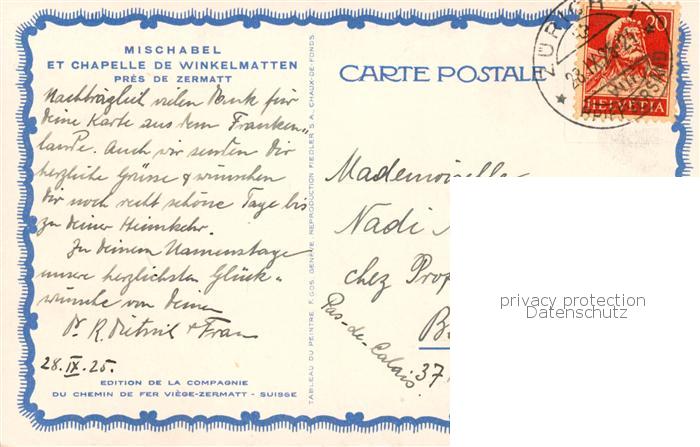 MISCHABEL
ET CHAPELLE DE WINKELMATTEN
PRÈS DE ZERMATT
Nachträglich vielen Dank für
deine Karte aus dem Franken-
lande. Auch wir senden dir
herzliche Grüsse & wünschen
dir noch recht schöne Tage bis
zu deiner Heimkehr.
Zu deinem Namenstage
unsere herzlichsten Glück-
wünsche von deinen
Dr. R. & Frau
28.IX.25.
EDITION DE LA COMPAGNIE
DU CHEMIN DE FER VIÈGE-ZERMATT - SUISSE
TABLEAU DU PEINTRE F. GOS, GENÈVE REPRODUCTION FIEDLER S.A., CHAUX-DE-FONDS
CARTE POSTALE
ZÜRICH 1
28.IX.25
BRIEFVERSAND
20
HELVETIA
Mademoiselle
Nadi
chez
Pas-de-Calais
37
privacy protection
Datenschutz